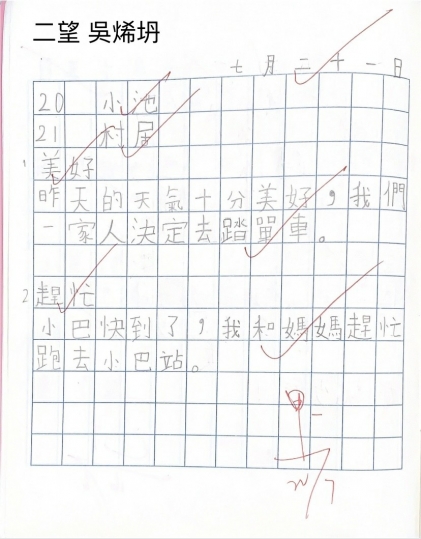 二望 吳烯坍
七月二十一日
20 小池
21 村居
1 美好
昨天的天氣十分美好，我們
一家人決定去踏單車。
2 趕忙
小巴快到了，我和媽媽趕忙
跑去小巴站。
甲-
22/7